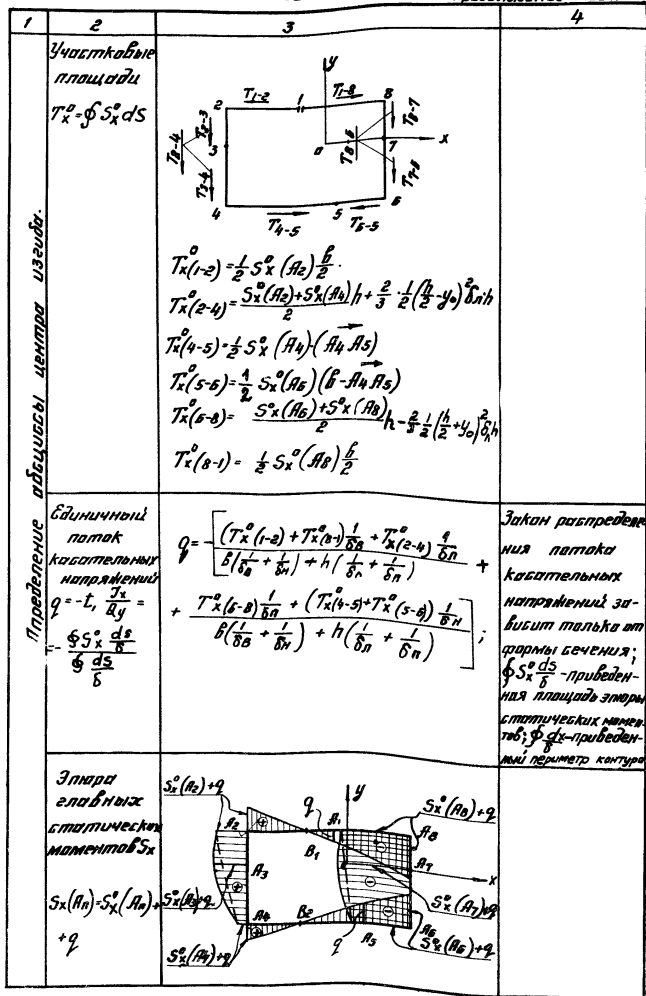 1 2 3 4
Определение абсциссы центра изгиба.
Участковые
площади
Tx⁰=∮Sx⁰ds
y
x
0
T1-2
1
T1-8
8
2
T2-3
T2-4
3
T3-4
4
T8-7
T8-6
7
T7-6
6
5
T4-5
T6-5
Tx⁰(1-2)=1/2 Sx⁰(A2) b/2.
Tx⁰(2-4)=(Sx⁰(A2)+Sx⁰(A4))/2 h + 2/3 · 1/2 (h/2-y₀)² δл h
Tx⁰(4-5)=1/2 Sx⁰(A4)·(A4A5)
Tx⁰(5-6)=1/2 Sx⁰(A6)(b-A4A5)
Tx⁰(6-8)= (Sx⁰(A6)+S⁰x(A8))/2 h - 2/3 1/2 (h/2+y₀)² δn h
Tx⁰(8-1)= 1/2 Sx⁰(A8) b/2
Единичный
поток
касательных
напряжений
q=-t, Jx/Qy =
=- ∮Sx⁰ ds/δ / ∮ds/δ
q=-[ ((Tx⁰(1-2)+Tx⁰(8-1)) 1/δв + Tx⁰(2-4) 1/δл) / (b(1/δв + 1/δн) + h(1/δл + 1/δп)) +
+ (Tx⁰(6-8) 1/δп + (Tx⁰(4-5)+Tx⁰(5-6)) 1/δн) / (b(1/δв + 1/δн) + h(1/δл + 1/δп)) ];
Закон распределе-
ния потока
касательных
напряжений за-
висит только от
формы сечения;
∮Sx⁰ ds/δ -приведен-
ная площадь эпюры
статических момен-
тов; ∮dx/δ-приведен-
ный периметр контура
Эпюра
главных
статических
моментов Sx
Sx(An)=Sx⁰(An)+
+q
Sx⁰(A2)+q
q
y
Sx⁰(A8)+q
A2
A1
A8
B1
A3
A7
x
Sx⁰(A3)+q
Sx⁰(A7)+q
A4
B2
A5
A6
q
Sx⁰(A4)+q
Sx⁰(A6)+q